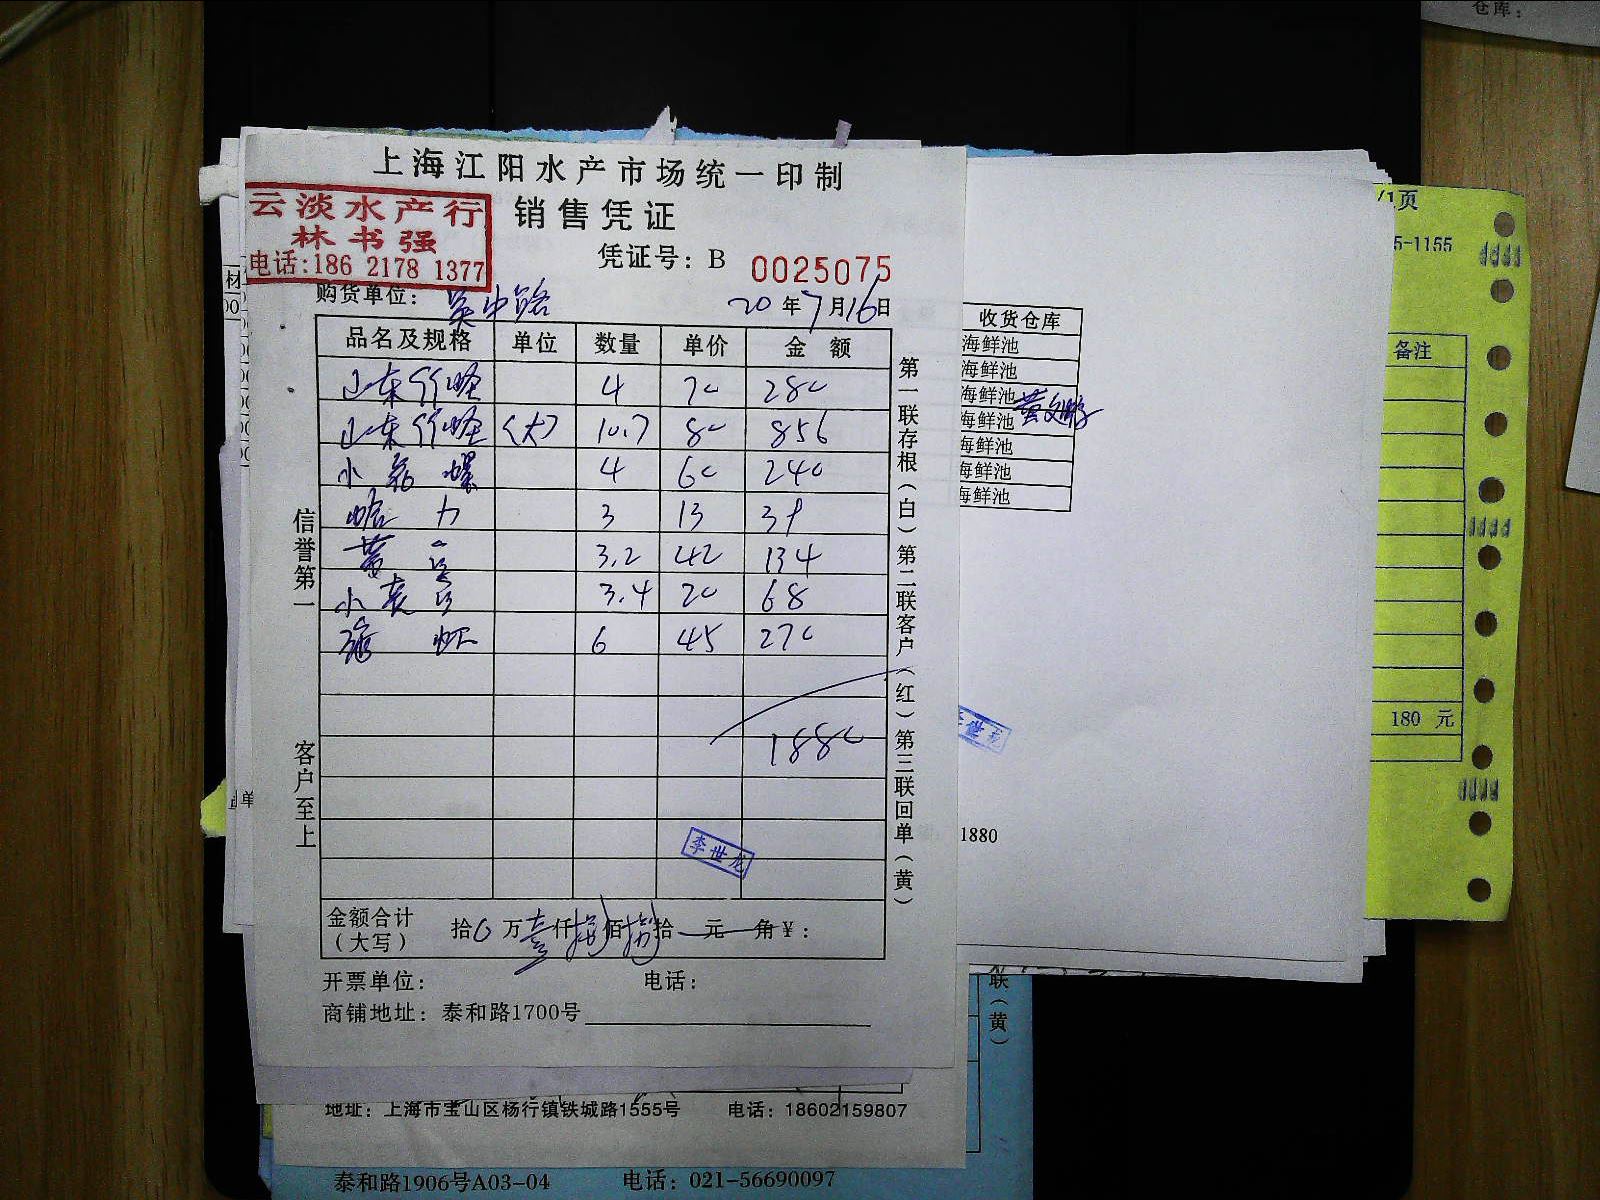 仓库：
上海江阳水产市场统一印制
云淡水产行
林书强
电话:186 2178 1377
销售凭证
凭证号：B 0025075
购货单位：吴中路
20年7月16日
品名及规格 单位 数量 单价 金额
山东竹蛏 4 70 280
山东竹蛏 (大) 10.7 80 856
小 螺 4 60 240
蛤 3 13 39
黄 3.2 42 134
小 3.4 20 68
虾 6 45 270
1880
李世龙
金额合计（大写） 拾0万壹仟捌佰捌拾元角¥：
开票单位： 电话：
商铺地址：泰和路1700号
信誉第一
客户至上
第一联存根（白）第二联客户（红）第三联回单（黄）
材
00
单
收货仓库
海鲜池
海鲜池
海鲜池
海鲜池
海鲜池
海鲜池
海鲜池
李世龙
1880
/1页
5-1155
备注
180 元
联（黄）
地址：上海市宝山区杨行镇铁城路1555号 电话：18602159807
泰和路1906号A03-04 电话：021-56690097